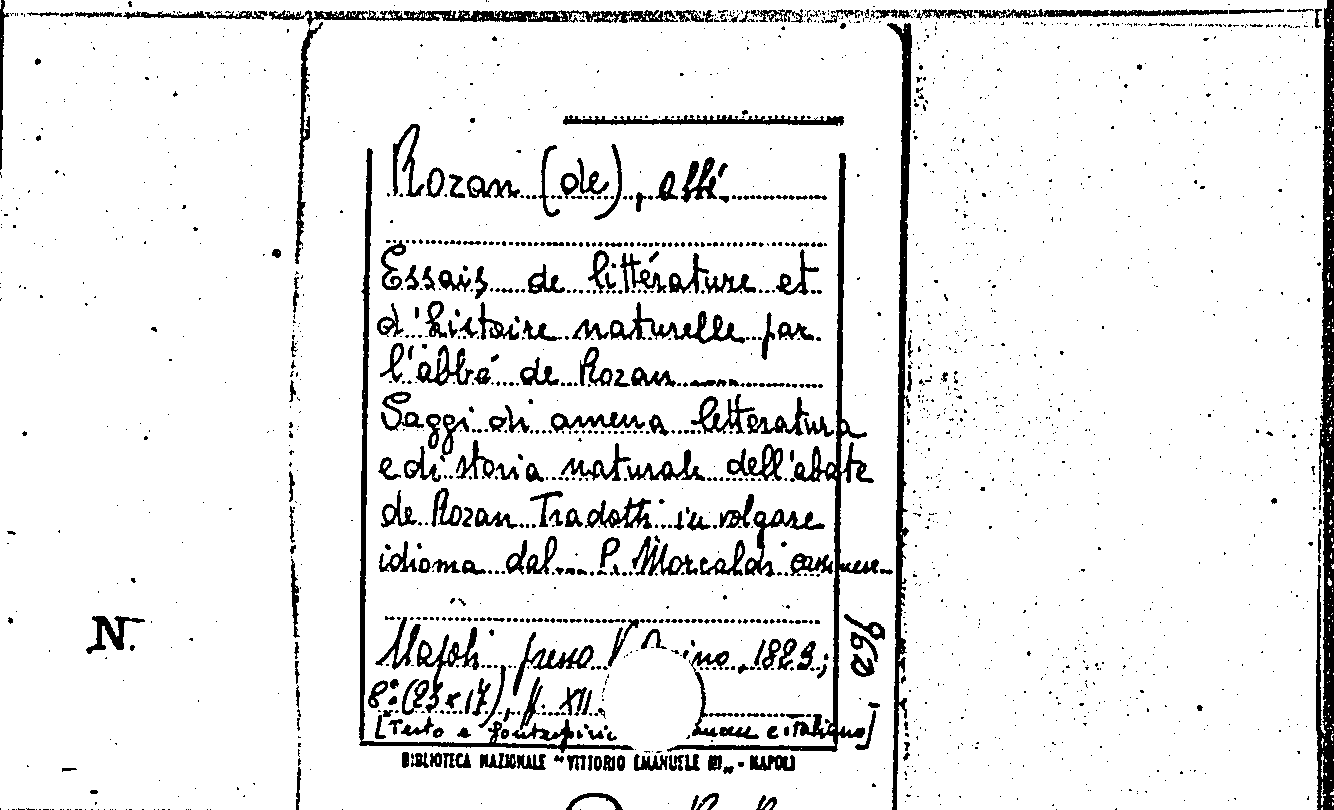 Rozan (de), abbé.
Essais de littérature et
d'histoire naturelle par
l'abbé de Rozan
Saggi di amena letteratura
e di storia naturale dell'abate
de Rozan Tradotti in volgare
idioma dal P. Morcaldi cassinese
N.
Napoli, presso 1829;
960
8.° (23x17), p. XII.
[Testo e e italiano]
BIBLIOTECA NAZIONALE "VITTORIO EMANUELE III" - NAPOLI